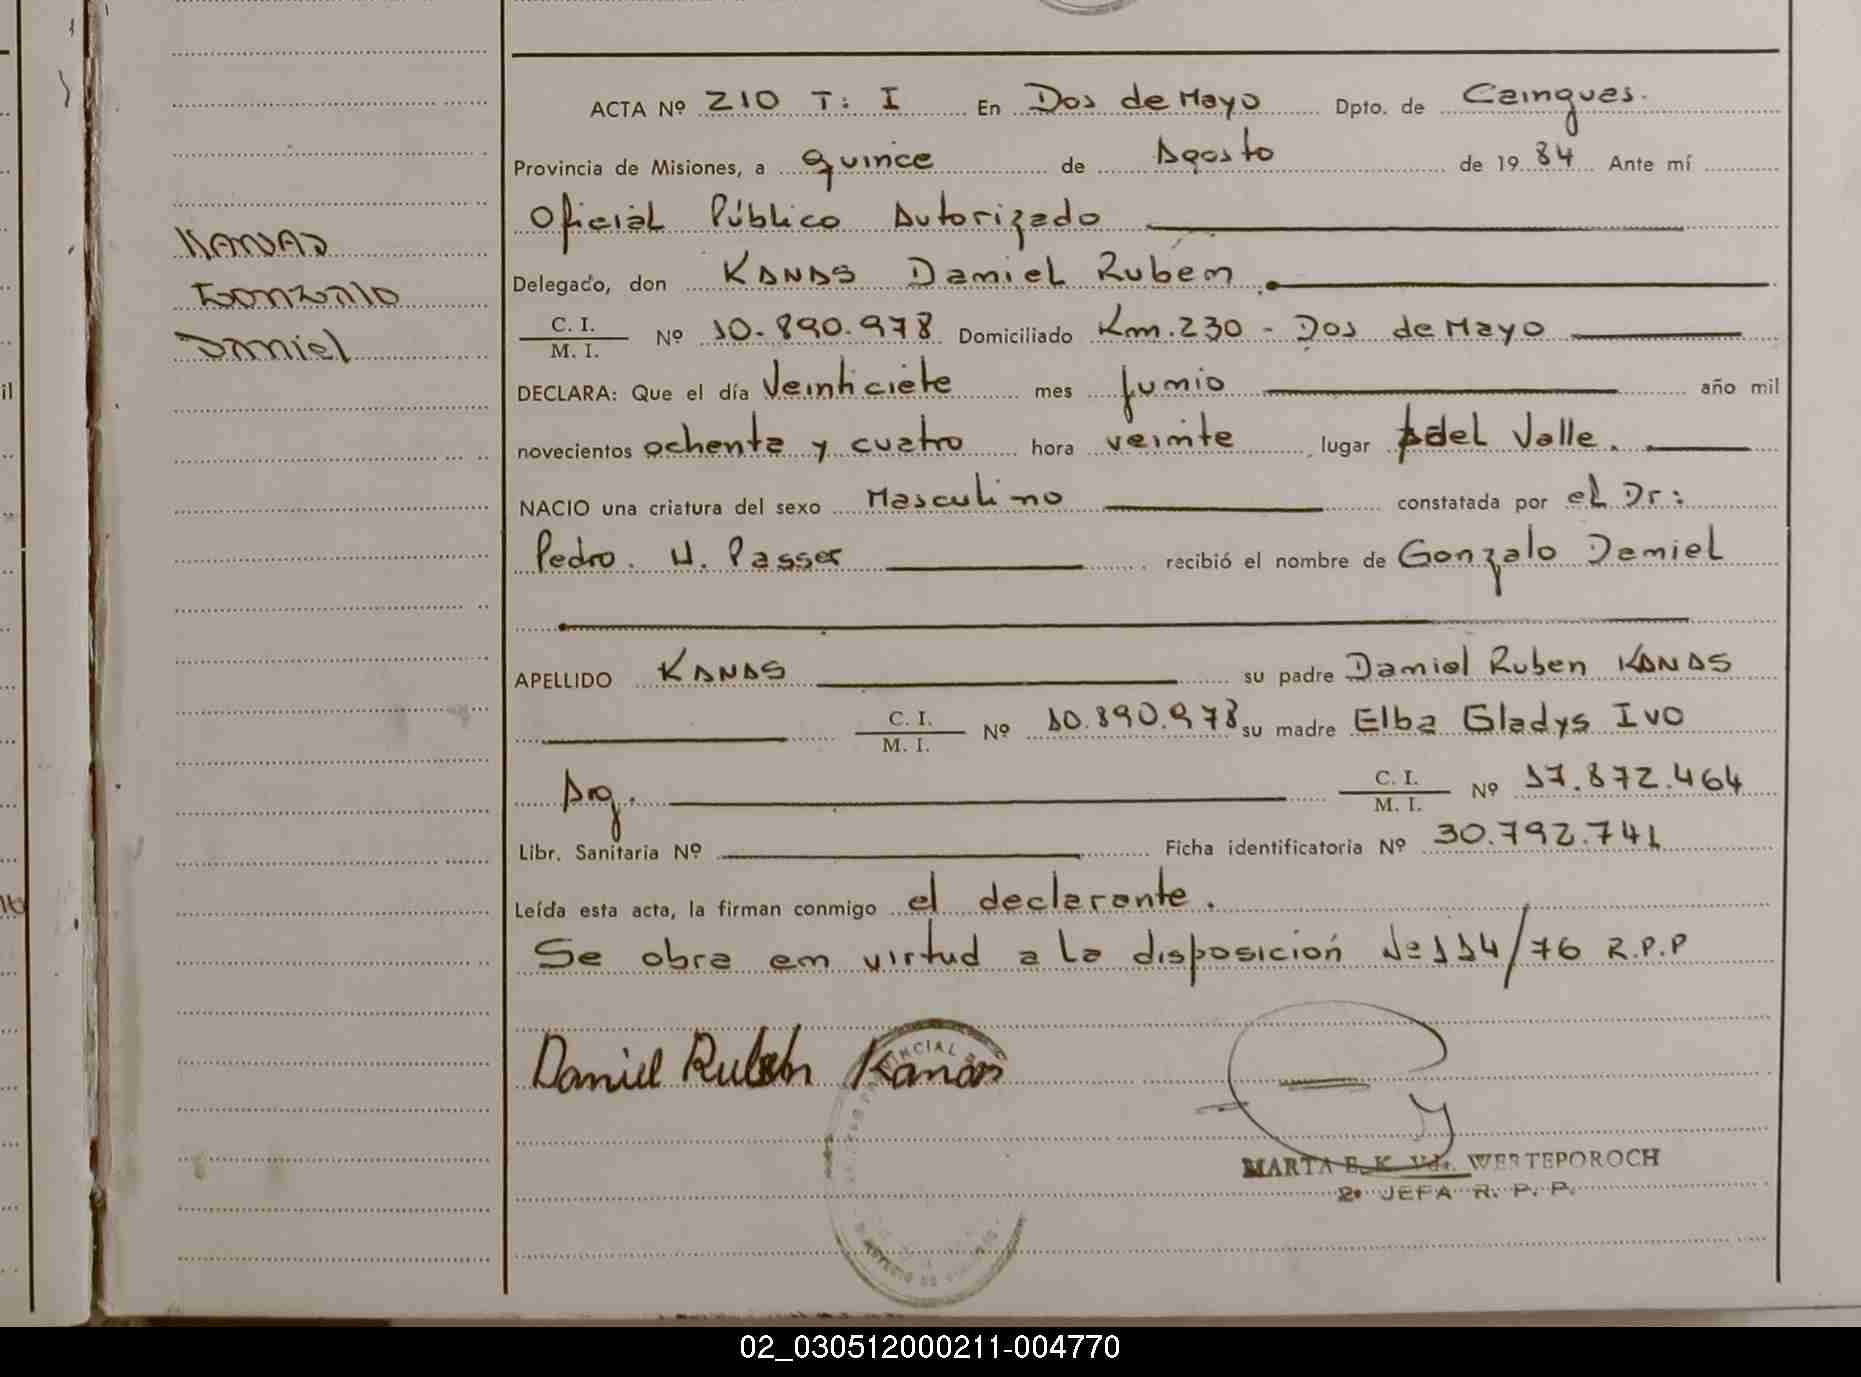 KANAS
Gonzalo
Daniel
ACTA Nº 210 T: I En Dos de Mayo Dpto. de Caingues.
Provincia de Misiones, a quince de Agosto de 1984 Ante mí
Oficial Público Autorizado
Delegado, don KANAS Daniel Ruben
C. I.
M. I. Nº 10.890.978 Domiciliado Km.230 - Dos de Mayo
DECLARA: Que el día Veinticiete mes Junio año mil
novecientos ochenta y cuatro hora veinte, lugar A del Valle.
NACIO una criatura del sexo Masculino constatada por el Dr:
Pedro. H. Passer recibió el nombre de Gonzalo Daniel
APELLIDO KANAS su padre Daniel Ruben KANAS
C. I.
M. I. Nº 10.890.978 su madre Elba Gladys Ivo
Arg. C. I.
M. I. Nº 17.872.464
Libr. Sanitaria Nº Ficha identificatoria Nº 30.792.741
Leída esta acta, la firman conmigo el declarante.
Se obra en virtud a la disposición Nº 114/76 R.P.P
Daniel Ruben Kanas
MARTA E. K. Vda. WERTEPOROCH
2º JEFA R. P. P.
02_030512000211-004770